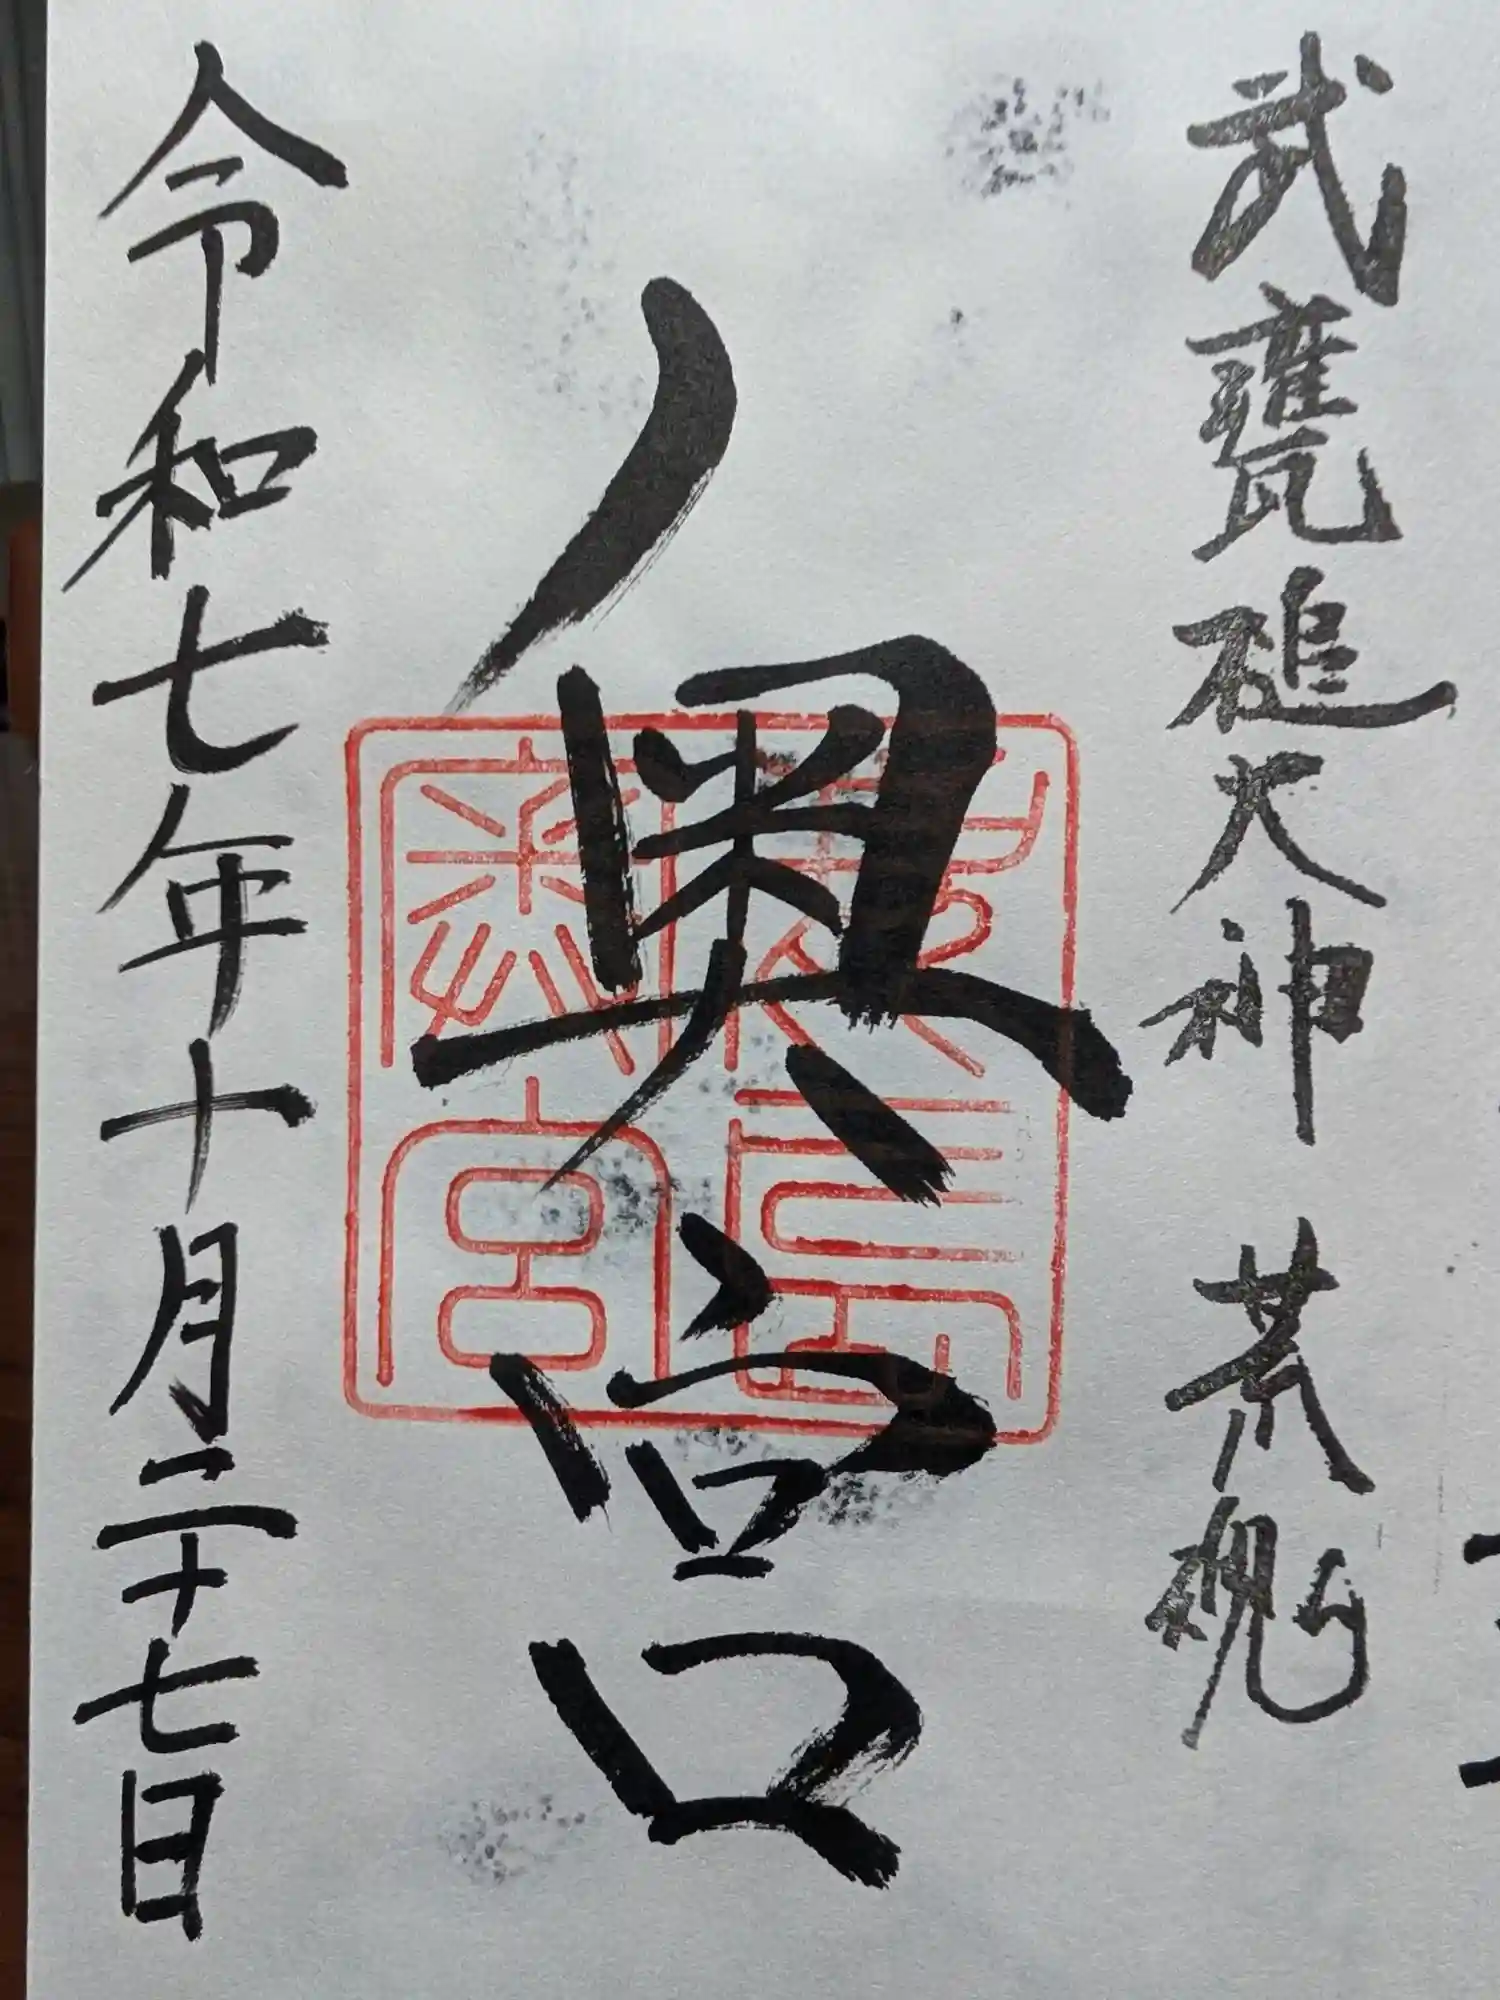 武甕槌大神 荒魂
奥宮
鹿島奥宮
令和七年十月二十七日